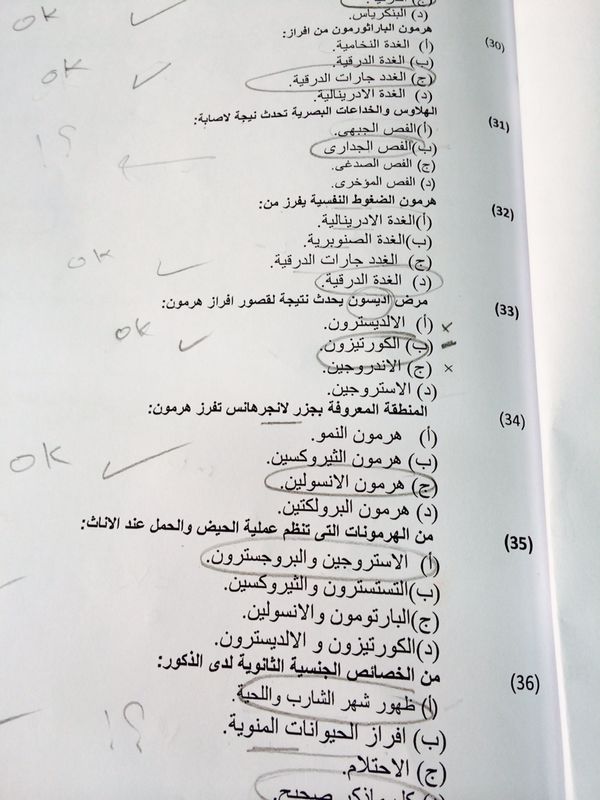 ج) الدرقية.
د) البنكرياس.
ok
(30) هرمون الباراثورمون من افراز:
أ) الغدة النخامية.
ب) الغدة الدرقية.
ج) الغدد جارات الدرقية.
د) الغدة الادرينالية.
ok
(31) الهلاوس والخداعات البصرية تحدث نيجة لاصابة:
أ) الفص الجبهى.
ب) الفص الجدارى
ج) الفص الصدغى.
د) الفص المؤخرى.
!?
(32) هرمون الضغوط النفسية يفرز من:
أ) الغدة الادرينالية.
ب) الغدة الصنوبرية.
ج) الغدد جارات الدرقية.
د) الغدة الدرقية.
ok
(33) مرض اديسون يحدث نتيجة لقصور افراز هرمون:
أ) الالديسترون.
ب) الكورتيزون.
ج) الاندروجين.
د) الاستروجين.
ok
(34) المنطقة المعروفة بجزر لانجرهانس تفرز هرمون:
أ) هرمون النمو.
ب) هرمون الثيروكسين.
ج) هرمون الانسولين.
د) هرمون البرولكتين.
ok
(35) من الهرمونات التى تنظم عملية الحيض والحمل عند الاناث:
أ) الاستروجين والبروجسترون.
ب) التستسترون والثيروكسين.
ج) البارتومون والانسولين.
د) الكورتيزون و الالديسترون.
(36) من الخصائص الجنسية الثانوية لدى الذكور:
أ) ظهور شهر الشارب واللحية.
ب) افراز الحيوانات المنوية.
ج) الاحتلام.
د) كل ماذكر صحيح.
!?